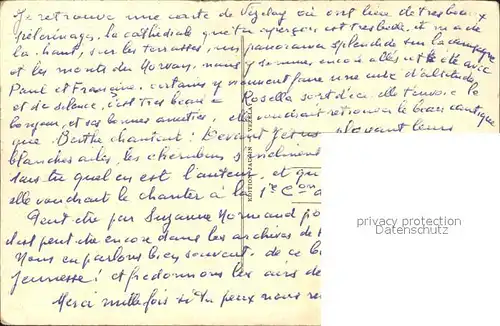 Je retrouve une carte de Vézelay où ont lieu de très beaux
pèlerinages. la cathédrale que tu aperçois est très belle, et on a de
là haut, sur les terrasses, un panorama splendide sur la campagne
et les monts du Morvan, nous y sommes encore allés cet été avec
Paul et Francine, certains y viennent faire une cure d'altitude
et de silence, c'est très beau. Rosella sort d'ici elle t'envoie le
bonjour, et ses bonnes amitiés, elle voudrait retrouver le beau cantique
que Berthe chantait : Devant Jésus, levant leurs
blanches ailes, les chérubins s'inclinent
sais tu quel en est l'auteur, et qu
elle voudrait le chanter à la 1re Con
Peut être par Suzanne Normand po
c'est peut être encore dans les archives de
Nous en parlons bien souvent, de ce b
jeunesse ! et fredonnons les airs de
Merci mille fois si tu peux nous re
EDITION JACQUIN - VEZELAY
privacy protection
www.ansichtskartenversand.com